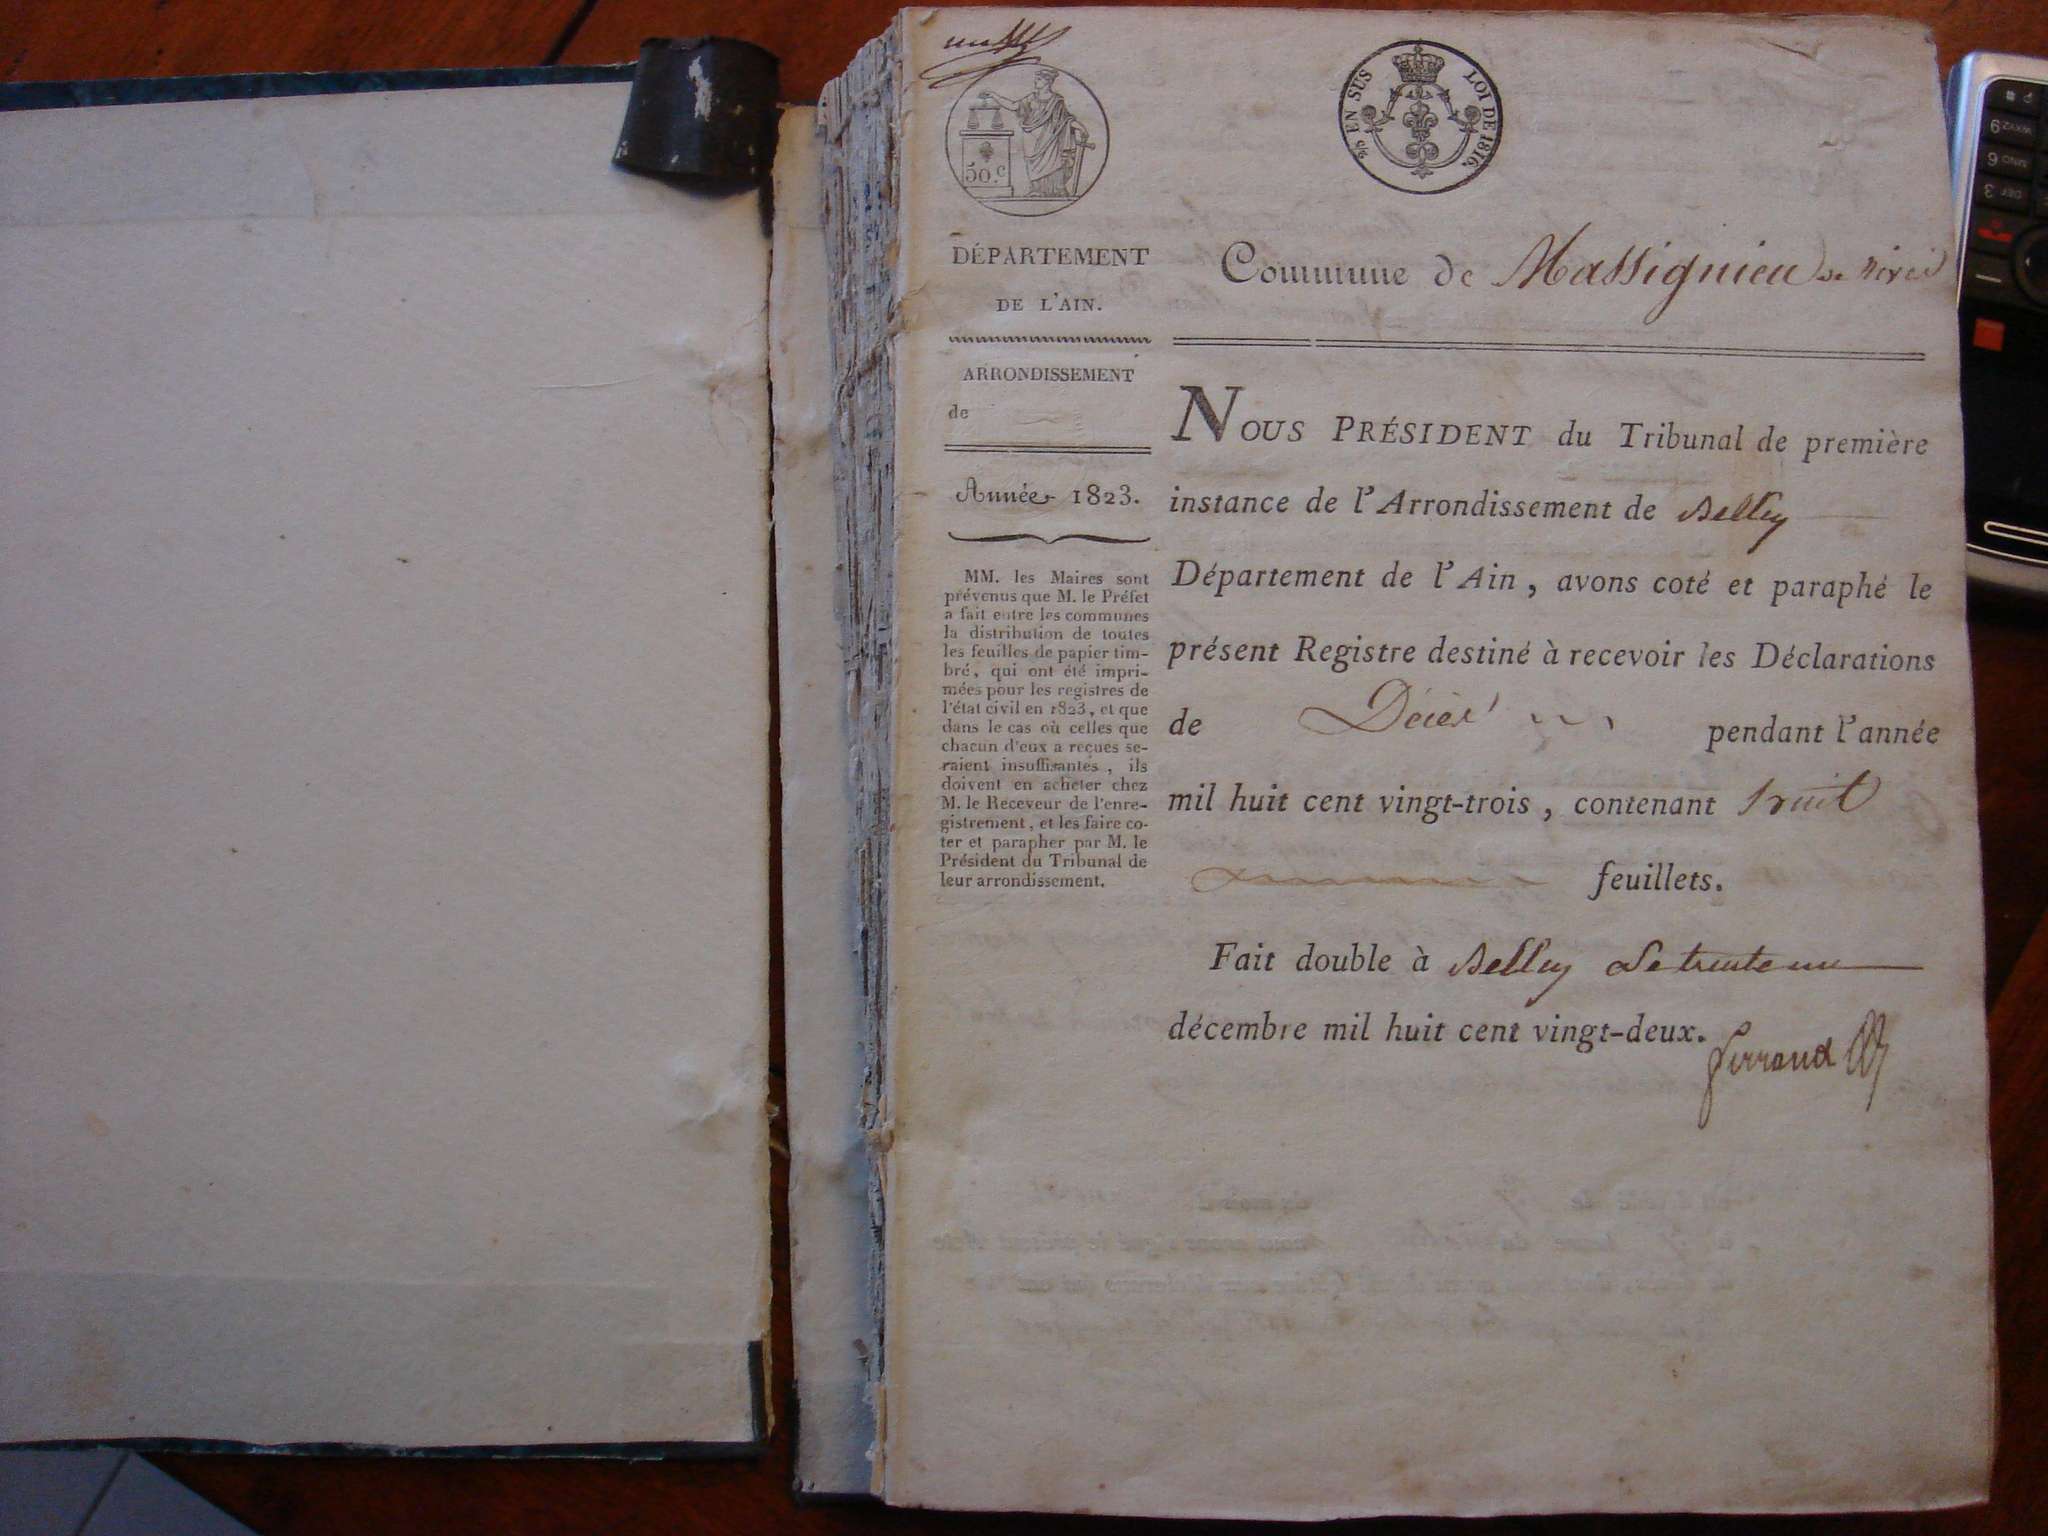 un
50.c
EN SUS
LOI DE 1816.
DÉPARTEMENT
DE L'AIN.
ARRONDISSEMENT
de
Année 1823.
MM. les Maires sont
prévenus que M. le Préfet
a fait entre les communes
la distribution de toutes
les feuilles de papier tim-
bré, qui ont été impri-
mées pour les registres de
l'état civil en 1823, et que
dans le cas où celles que
chacun d'eux a reçues se-
raient insuffisantes, ils
doivent en acheter chez
M. le Receveur de l'enre-
gistrement, et les faire co-
ter et parapher par M. le
Président du Tribunal de
leur arrondissement.
Commune de Massignieu de rives
NOUS PRÉSIDENT du Tribunal de première
instance de l'Arrondissement de Belley
Département de l'Ain, avons coté et paraphé le
présent Registre destiné à recevoir les Déclarations
de Décès pendant l'année
mil huit cent vingt-trois, contenant huit
feuillets.
Fait double à Belley le trente un
décembre mil huit cent vingt-deux.
WXYZ 9
MNO 6
DEF 3